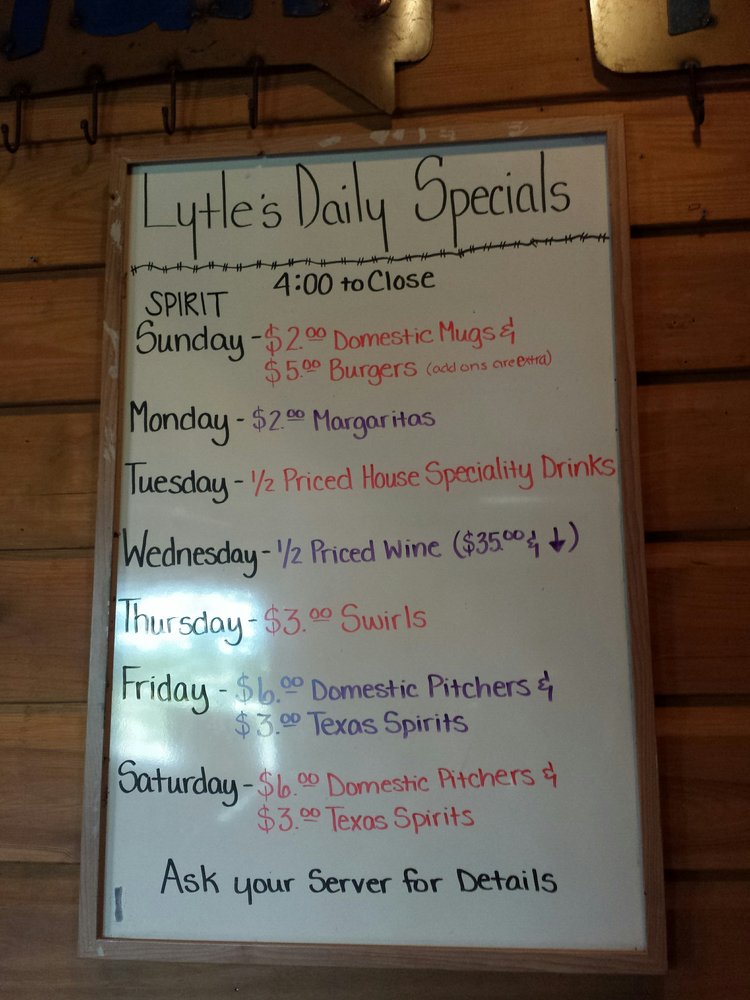 Lytle's Daily Specials
4:00 to Close
SPIRIT
Sunday - $2.00 Domestic Mugs &
$5.00 Burgers (add ons are extra)
Monday - $2.00 Margaritas
Tuesday - 1/2 Priced House Speciality Drinks
Wednesday - 1/2 Priced Wine ($35.00 & ↓)
Thursday - $3.00 Swirls
Friday - $6.00 Domestic Pitchers &
$3.00 Texas Spirits
Saturday - $6.00 Domestic Pitchers &
$3.00 Texas Spirits
Ask your Server for Details